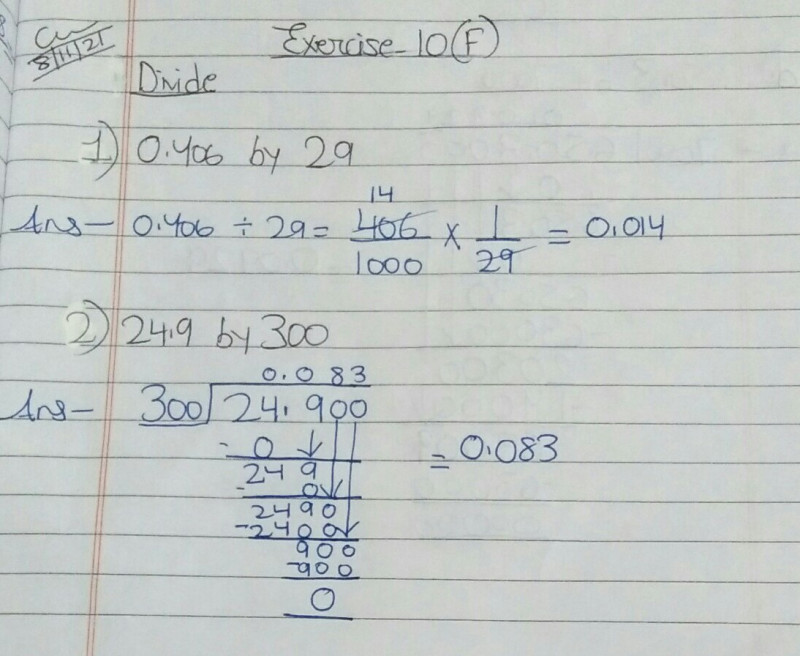 Cw
8/11/21
Exercise-10(F)
Divide
1) 0.406 by 29
Ans- 0.406 ÷ 29 = 406/1000 × 1/29 = 0.014
14
2) 24.9 by 300
0.083
Ans- 300)24.900
- 0
= 0.083
249
- 0
2490
-2400
900
-900
0